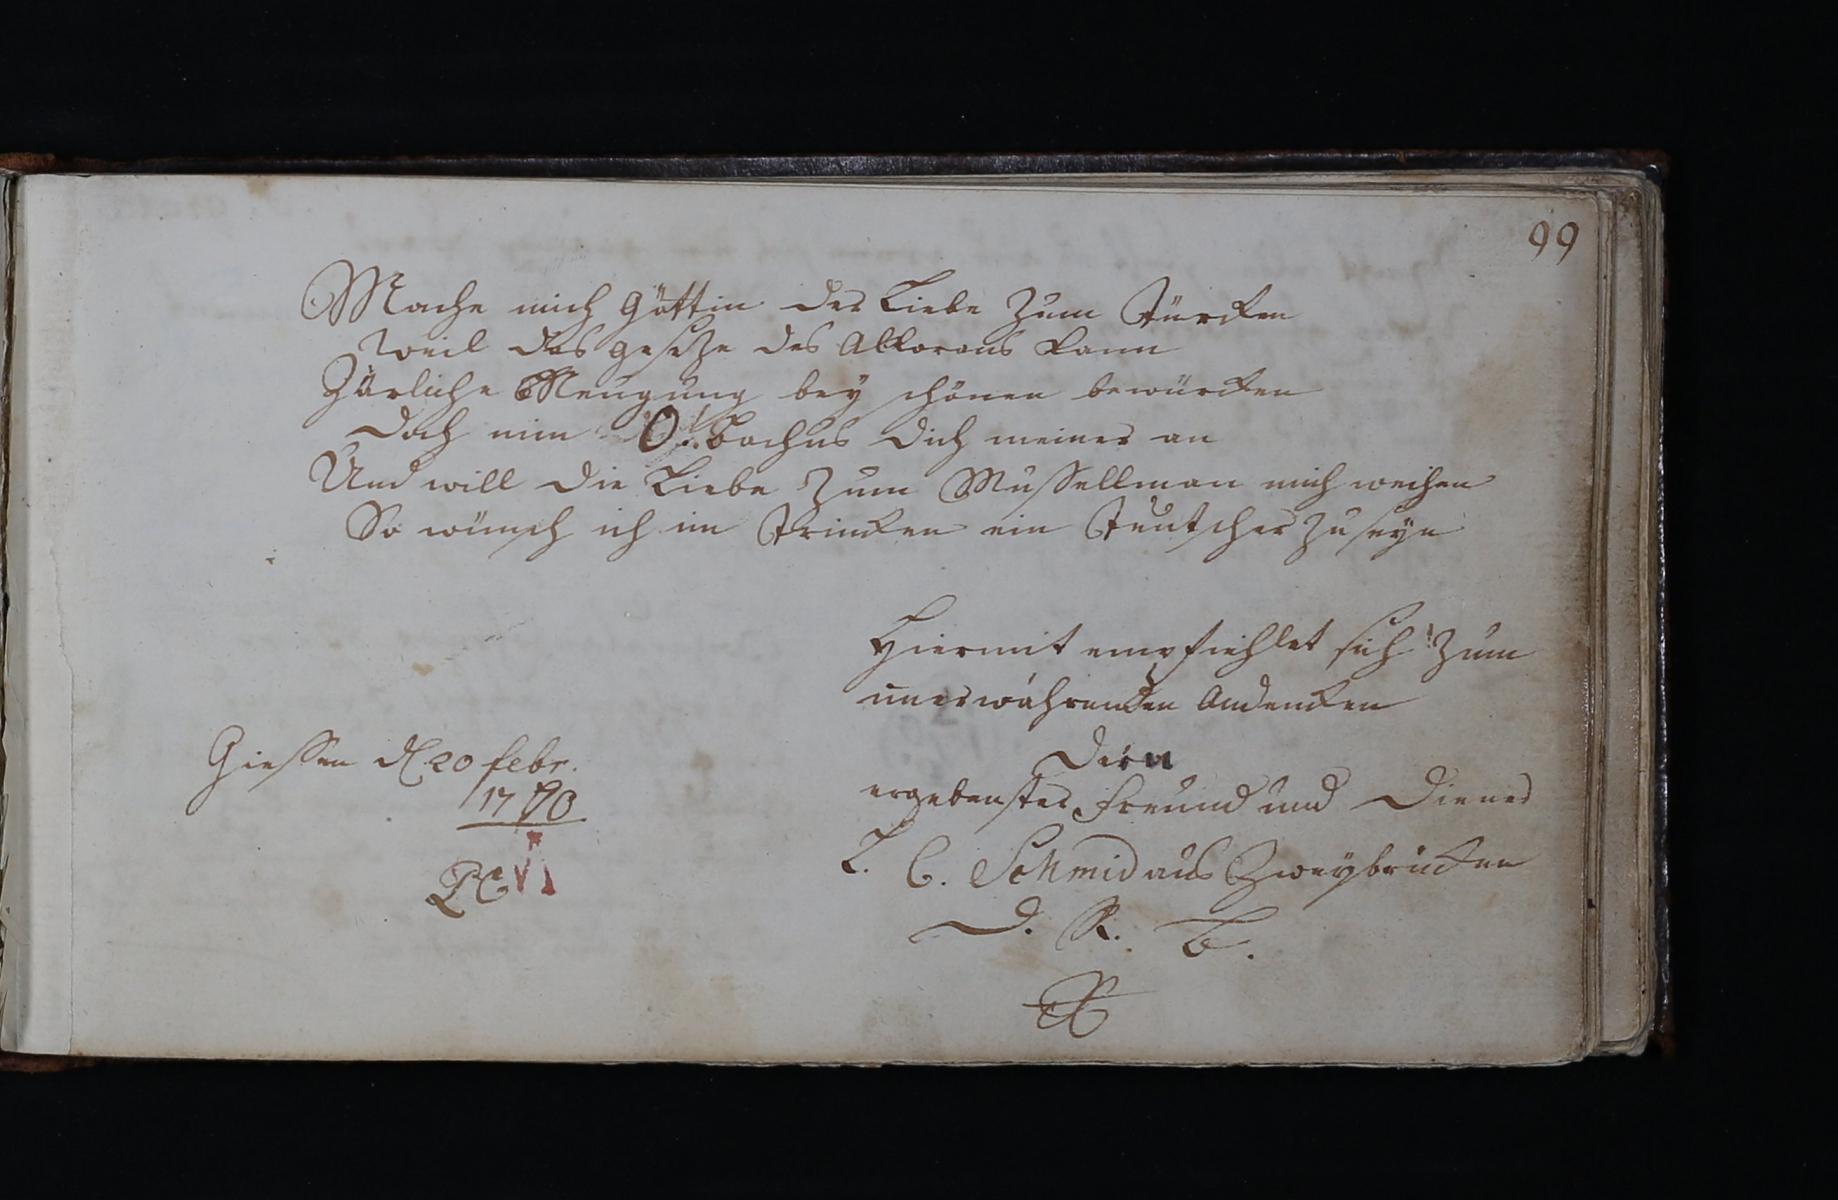 99
Mache mich Göttin der Liebe zum Türcken
Weil das gesetze des Alkorans kann
Zärliche Neugung bey schönen bewürcken
Doch nim O! Bachus dich meiner an
Und will die Liebe zum Musellman mich weihen
So wünsch ich im Trincken ein Teutscher zu seyn
Hiermit empfiehlet sich zum
imerwährenden Andencken
Dein
ergebenster Freund und Diener
L. C. Schmid aus Zweybrücken
D. R. B.
Giessen d 20 febr.